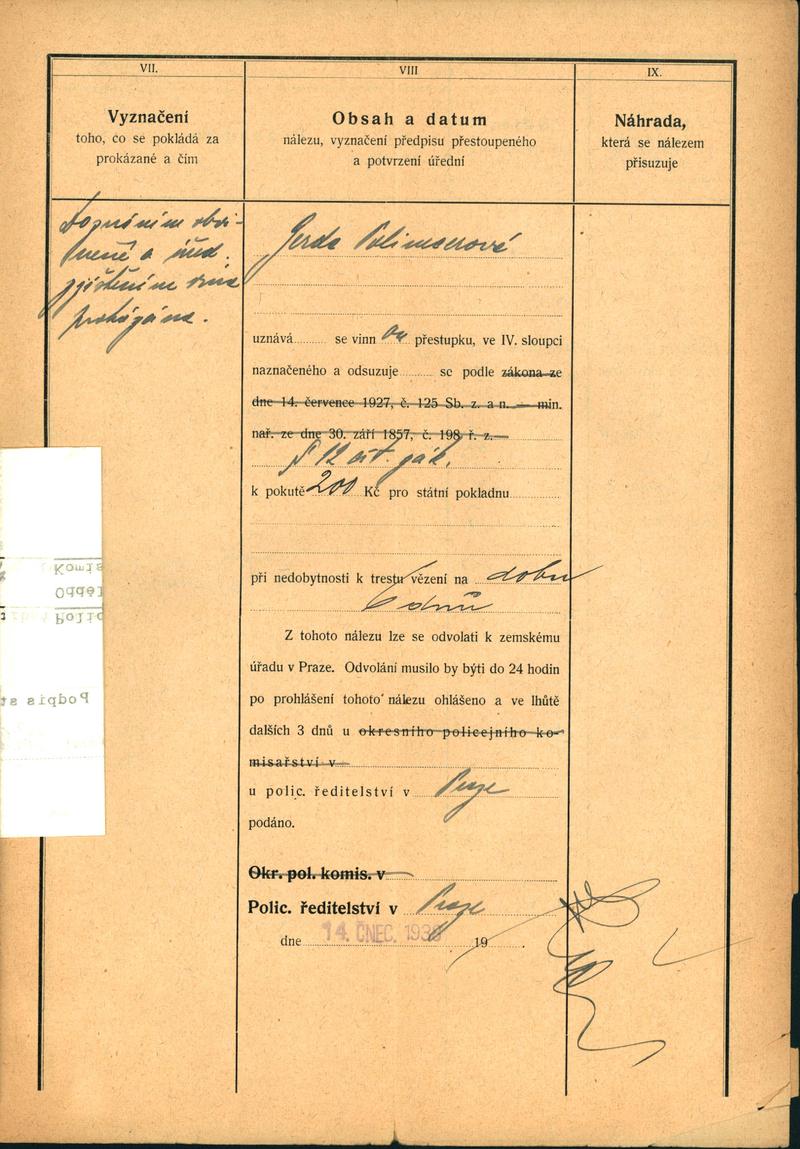 VII.
Vyznačení
toho, co se pokládá za
prokázané a čím
VIII
Obsah a datum
nálezu, vyznačení předpisu přestoupeného
a potvrzení úřední
IX.
Náhrada,
která se nálezem
přisuzuje
Doznáním obvi-
něné a úřed.
zjištěním vina
prokázána.
Gerda
uznává se vinn ou přestupku, ve IV. sloupci
naznačeného a odsuzuje se podle zákona ze
dne 14. července 1927, č. 125 Sb. z. a n. — min.
nař. ze dne 30. září 1857, č. 198 ř. z.
§ 12 zák.
k pokutě 200 Kč pro státní pokladnu
při nedobytnosti k trestu vězení na dobu
6 dnů
Z tohoto nálezu lze se odvolati k zemskému
úřadu v Praze. Odvolání musilo by býti do 24 hodin
po prohlášení tohoto nálezu ohlášeno a ve lhůtě
dalších 3 dnů u okresního policejního ko-
misařství v
u polic. ředitelství v Praze
podáno.
Okr. pol. komis. v
Polic. ředitelství v Praze
dne 14. ČNEC. 1938 19 .
Komis
Odděl
Polic
Podpis st